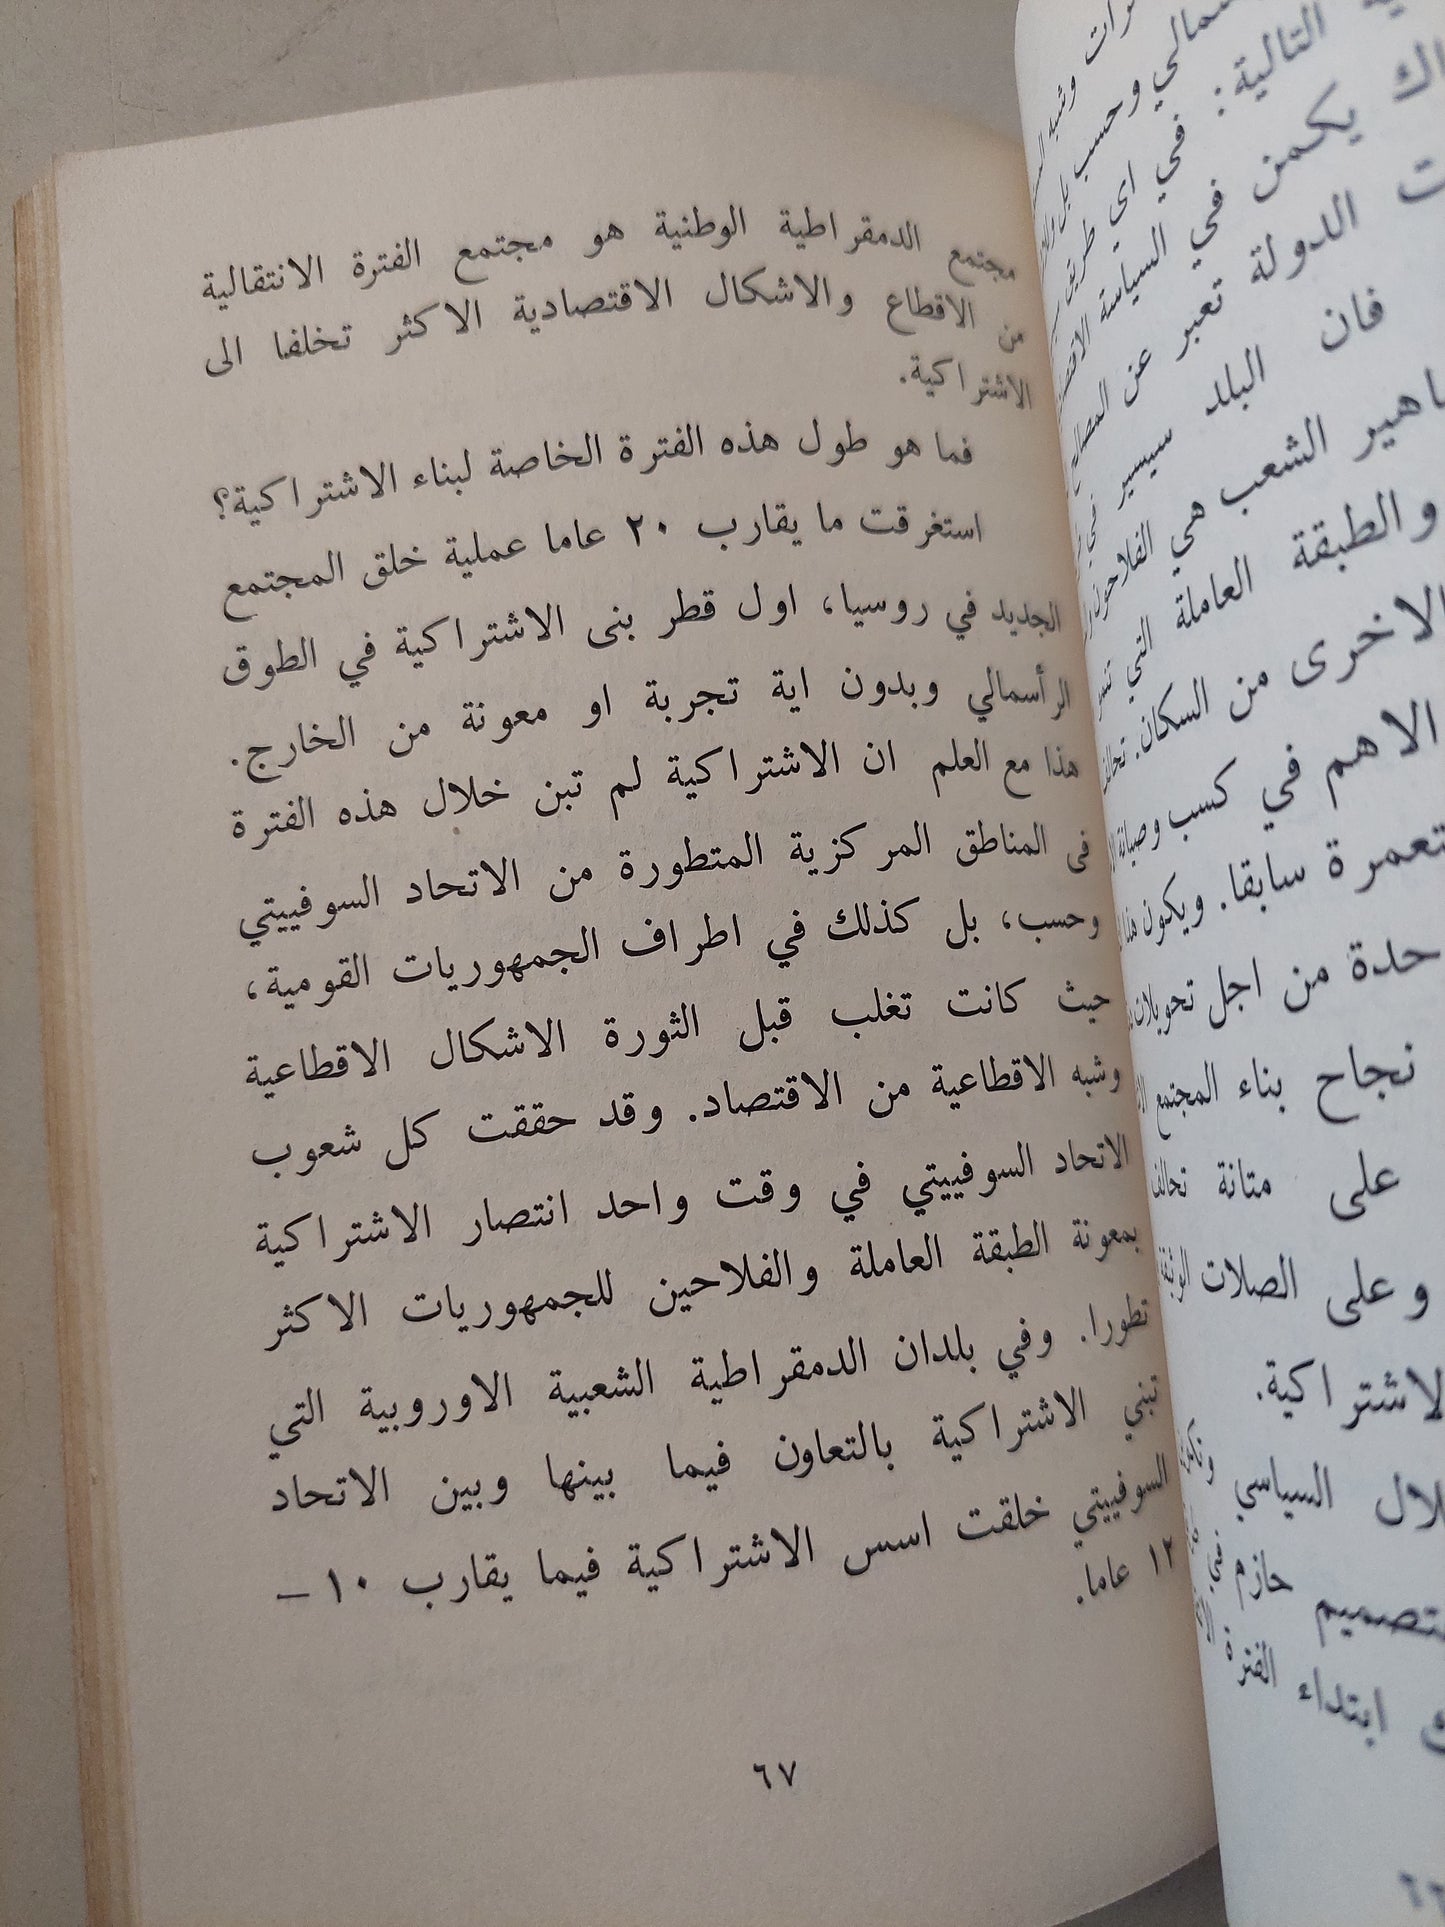 مجتمع الدمقراطية الوطنية هو مجتمع الفترة الانتقالية
من الاقطاع والاشكال الاقتصادية الاكثر تخلفا الى
الاشتراكية.
فما هو طول هذه الفترة الخاصة لبناء الاشتراكية؟
استغرقت ما يقارب ٢٠ عاما عملية خلق المجتمع
الجديد في روسيا، اول قطر بنى الاشتراكية في الطوق
الرأسمالي وبدون اية تجربة او معونة من الخارج.
هذا مع العلم ان الاشتراكية لم تبن خلال هذه الفترة
فى المناطق المركزية المتطورة من الاتحاد السوفييتي
وحسب، بل كذلك في اطراف الجمهوريات القومية،
حيث كانت تغلب قبل الثورة الاشكال الاقطاعية
وشبه الاقطاعية من الاقتصاد. وقد حققت كل شعوب
الاتحاد السوفييتي في وقت واحد انتصار الاشتراكية
بمعونة الطبقة العاملة والفلاحين للجمهوريات الاكثر
تطورا. وفي بلدان الدمقراطية الشعبية الاوروبية التي
تبني الاشتراكية بالتعاون فيما بينها وبين الاتحاد
السوفييتي خلقت اسس الاشتراكية فيما يقارب ١٠ –
١٢ عاما.
٦٧
وشبه
وحسب بل
التالية: في اي طريق
يكمن في السياسة
الدولة تعبر عن
فان البلد سيسير في
الشعب هي الفلاحون
والطبقة العاملة التي
الاخرى من السكان. تحالف
الاهم في كسب وصيانة
سابقا. ويكون هذا
من اجل تحويلات
نجاح بناء المجتمع
على متانة تحالف
وعلى الصلات
السياسي
حازم في
ابتداء الفترة